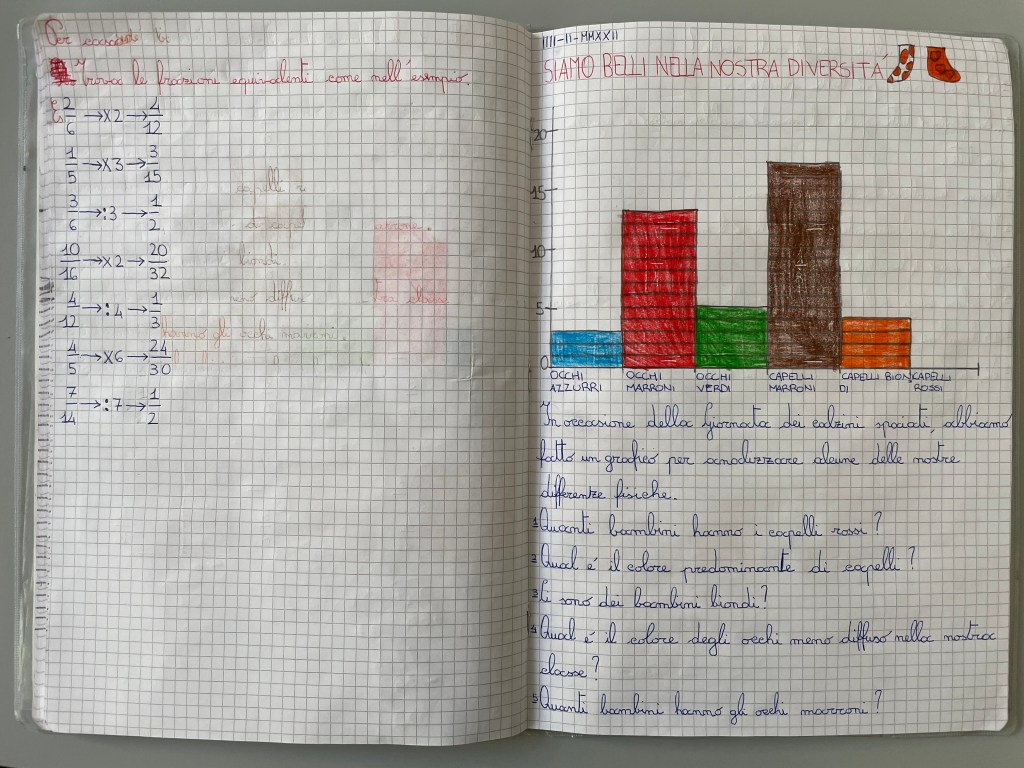 Per
Trova le frazioni equivalenti come nell'esempio.
Es 2/6 →X2→ 4/12
1/5 →X3→ 3/15
3/6 →:3→ 1/2
10/16 →X2→ 20/32
4/12 →:4→ 1/3
4/5 →X6→ 24/30
7/14 →:7→ 1/2
capelli
biondi
sono diffuso
hanno gli occhi marroni.
IIII-II-MMXXII
SIAMO BELLI NELLA NOSTRA DIVERSITÁ
20
15
10
5
0
OCCHI AZZURRI
OCCHI MARRONI
OCCHI VERDI
CAPELLI MARRONI
CAPELLI BIONDI
CAPELLI ROSSI
In occasione della Giornata dei calzini spaiati, abbiamo
fatto un grafico per analizzare alcune delle nostre
differenze fisiche.
1 Quanti bambini hanno i capelli rossi?
2 Qual é il colore predominante di capelli?
3 Ci sono dei bambini biondi?
4 Qual é il colore degli occhi meno diffuso nella nostra
classe?
5 Quanti bambini hanno gli occhi marroni?